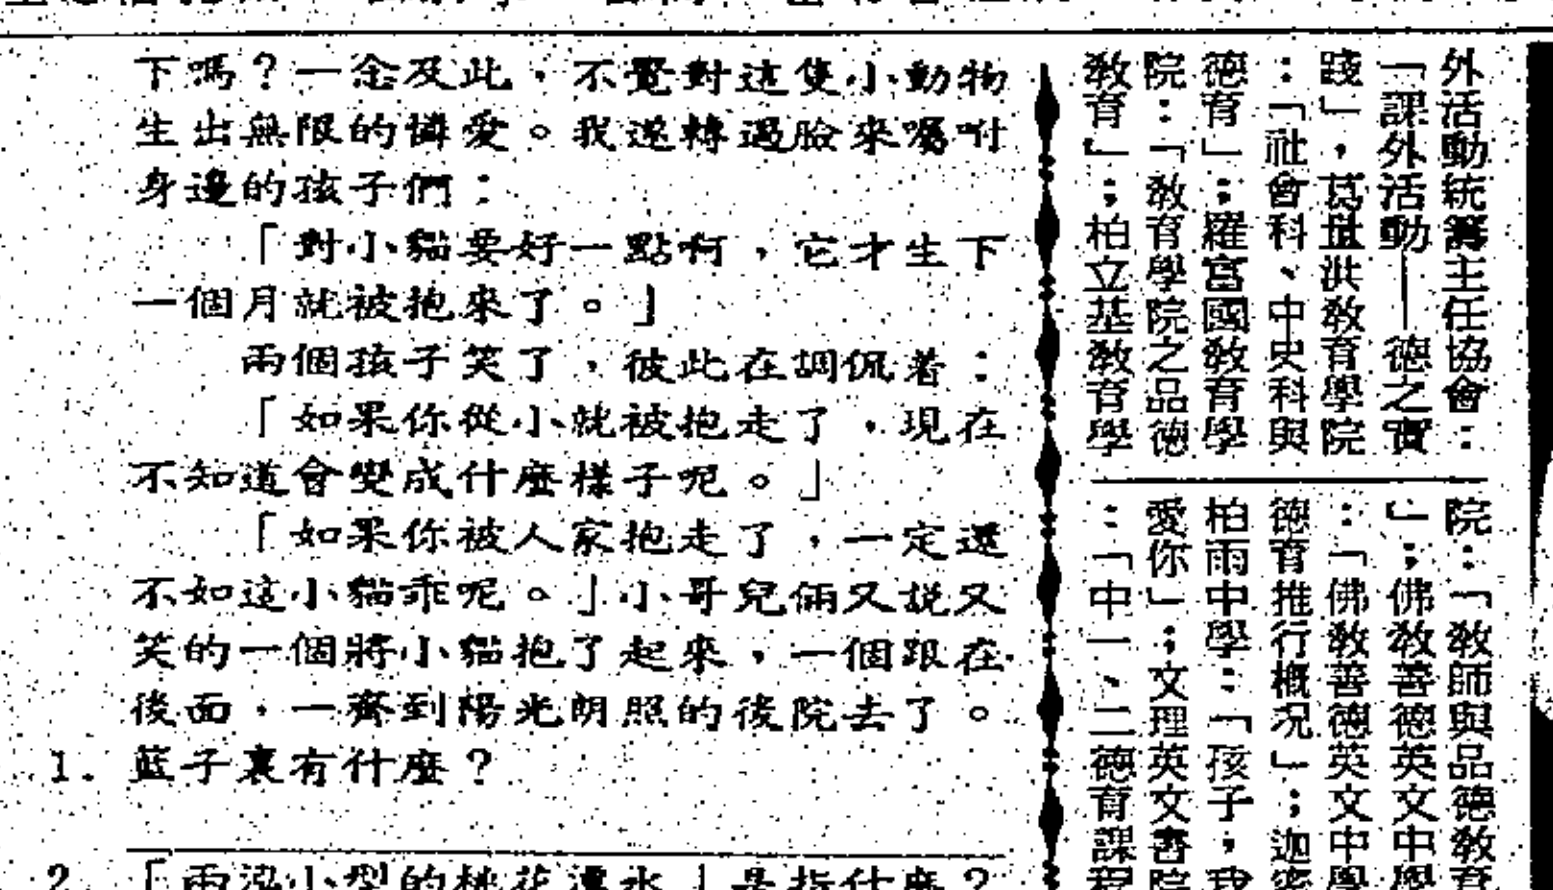 下嗎？一念及此，不覺對這隻小動物
生出無限的憐愛。我遂轉過臉來囑咐
身邊的孩子們：
「對小貓要好一點啊，它才生下
一個月就被抱來了。」
兩個孩子笑了，彼此在調侃着：
「如果你從小就被抱走了，現在
不知道會變成什麼樣子呢。」
「如果你被人家抱走了，一定還
不如這小貓乖呢。」小哥兒倆又說又
笑的一個將小貓抱了起來，一個跟在
後面，一齊到陽光朗照的後院去了。
1. 藍子裏有什麼？
2. 「兩泓小型的桃花潭水」是指什麼？
外活動統籌主任協會：
「課外活動——德之實
踐」，葛量洪教育學院
：「社會科、中史科與
德育」；羅富國教育學
院：「教育學院之品德
教育」；柏立基教育學
院：「教師與品德教育
」；佛教善德英文中學
：「佛教善德英文中學
德育推行概況」；迦密
柏雨中學：「孩子，我
愛你」；文理英文書院
：「中一、二德育課程